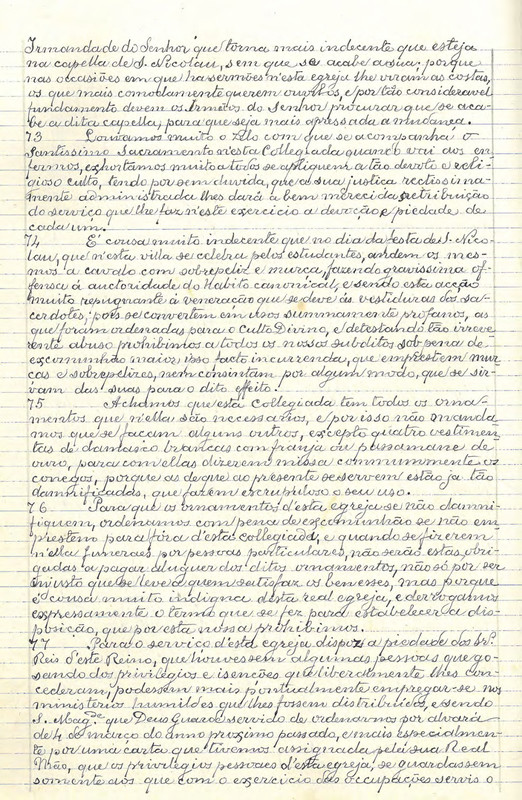 Irmandade do Senhor que torna mais indecente que esteja
na capella de S. Nicolau, sem que se acabe a sua; porque
nas occasiões em que ha sermões n'esta egreja lhe viram as costas,
os que mais comodamente querem ouvil-os, e por tão consideravel
fundamento devem os Irmãos do Senhor procurar que se aca-
be a dita capella, para que seja mais apressada a mudança.
73 Louvamos muito o zelo com que se acompanha o
Santissimo Sacramento n'esta Collegiada quando vai aos en-
fermos, exhortamos muito a todos se appliquem a tão devoto e reli-
gioso culto, tendo por sem duvida, que a sua justiça rectissima-
mente administrada lhes dará a bem merecida retribuição
do serviço que lhe faz n'este exercicio a devoção e piedade de
cada um.
74 É cousa muito indecente que no dia da festa de S. Nico-
lau, que n'esta villa se celebra pelos estudantes, andem os mes-
mos a cavallo com sobrepeliz e murça, fazendo gravissima of-
fensa á auctoridade do Habito canonical, e sendo esta acção
muito repugnante á veneração que se deve ás vestiduras dos sa-
cerdotes; pois se convertem em usos summamente profanos, as
que foram ordenadas para o Culto Divino, e detestando tão irreve-
rente abuso prohibimos a todos os nossos subditos sob pena de
excommunhão maior, ipso facto incurrenda, que emprestem mur-
ças e sobrepelizes, nem consintam por algum modo, que se sir-
vam das suas para o dito effeito.
75 Achamos que esta Collegiada tem todos os orna-
mentos que n'ella são necessarios, e por isso não manda-
mos que se façam alguns outros, excepto quatro vestimen-
tas de damasco brancas com franja ou passamane de
ouro, para com ellas dizerem missa commummente os
conegos, porque as de que ao presente se servem estão já tão
damnificadas, que fazem escrupuloso o seu uso.
76 Para que os ornamentos d'esta egreja se não damni-
fiquem, ordenamos com pena de excomunhão se não em-
prestem para fóra d'esta collegiada, e quando se fizerem
n'ella funeraes por pessoas particulares, não serão estas obri-
gadas a pagar aluguer dos ditos ornamentos, não só por ser
injusto que se leve a quem satisfaz os benesses, mas porque
é cousa muito indigna desta real egreja, e derrogamos
expressamente o termo que se fez para estabelecer a dis-
posição, que por esta nossa prohibimos.
77 Para o serviço d'esta egreja dispoz a piedade dos Snr.s
Reis d'este Reino, que houvessem algumas pessoas que go-
sando dos privilegios e isenções que liberalmente lhes con-
cederam, podessem mais pontualmente empregar-se nos
ministerios humildes que lhes fossem distribuidos, e sendo
S. Mag.de que Deus Guarde servido de ordenar-nos por alvará
de 4 de março do anno proximo passado, e mais especialmen-
te por uma carta que tivemos assignada pela sua Real
Mão, que os privilegios pessoaes d'esta egreja, se guardassem
somente aos que com o exercicio das occupações servis o